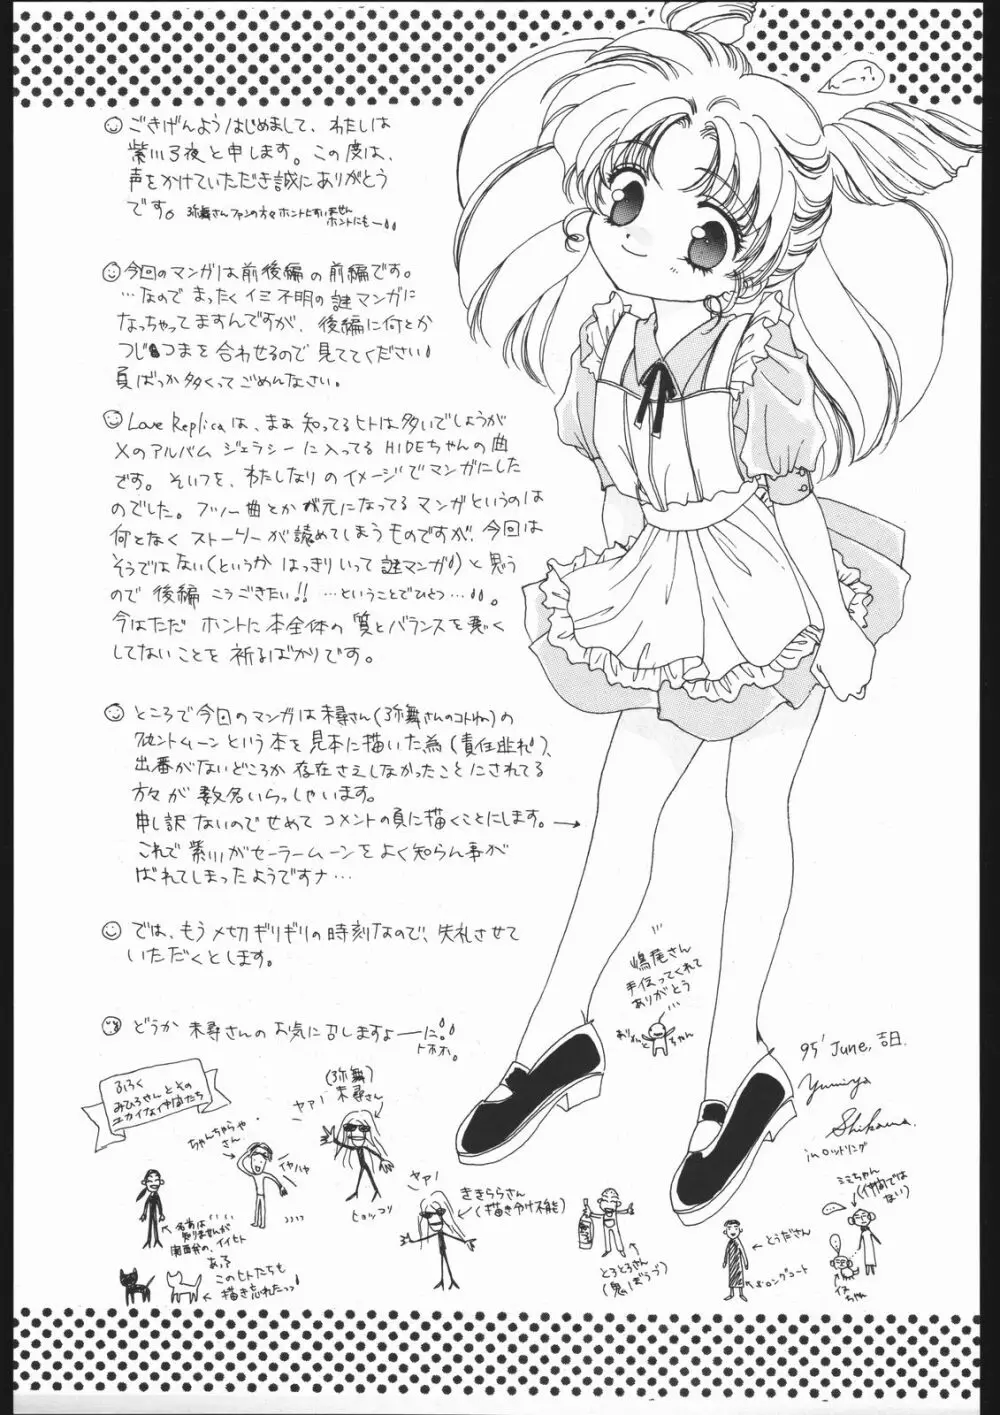 ん―っ?
ごきげんようはじめまして、わたしは
紫川弓夜と申します。この度は、
声をかけていただき誠にありがとう
です。弥舞さんファンの方々ホントにすいません
ホントにも―
今回のマンガは前後編の前編です。
…なので まったくイミ不明の謎マンガに
なっちゃってますんですが、後編に何とか
つじつまを合わせるので見ててください
負ばっか多くってごめんなさい。
Love Replicaは、まぁ知ってるヒトは多いでしょうが
Xのアルバム ジェラシーに入ってるHIDEちゃんの曲
です。そいつを、わたしなりのイメージでマンガにした
のでした。フツー曲とかが元になってるマンガというのは
何となくストーリーが読めてしまうものですが、今回は
そうではない(というか はっきりいって謎マンガ)と思う
ので後編 こうごきたい!! …ということでひとつ…。
今はただ ホントに本全体の質とバランスを悪く
してないことを祈るばかりです。
ところで今回のマンガは未尋さん(弥舞さんのコトね)の
ムーンという本を見本に描いた為(責任転嫁)、
出番がないどころか存在さえしなかったことにされてる
方々が数名いらっしゃいます。
申し訳ないのでせめてコメントの頁に描くことにします。→
これで紫川がセーラームーンをよく知らん事が
ばれてしまったようですナ…
では、もう〆切ギリギリの時刻なので、失礼させて
いただくとします。
どうか 未尋さんのお気に召しますよーに。
トホホ。
嶋尾さん
手伝ってくれて
ありがとう
ちゃん
95' June, 吉日.
Yumiya
Shikawa.
in ロッドリング
ふろく
みひろさんとその
ユカイな仲間たち
ちゃんちゃらや
さん
イヤハヤ
名前は
知りませんが
関西弁の、イイヒト
ある
このヒトたちも
描き忘れたっっ
(弥舞)
未尋さん
ヤァ!
ヒョッコリ
ヤァ!
きききらさん
(描き分け不能)
とろとろさん
(鬼ぼうず)
とうださん
ロングコート
ミミちゃん
(仲間では
ない)
ちゃん